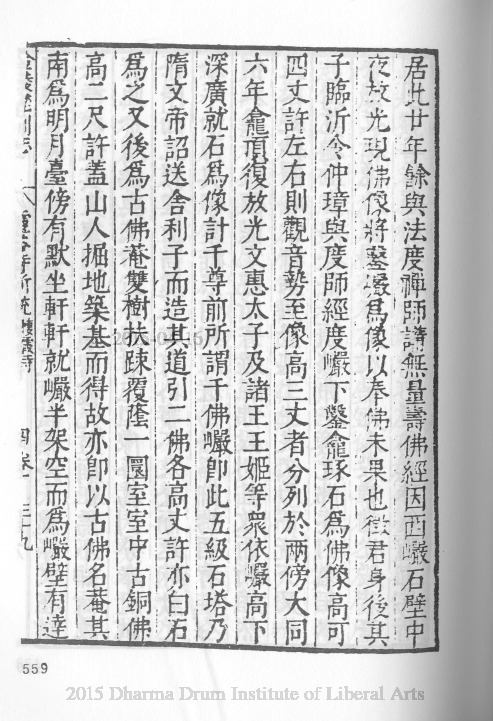 居此廿年餘與法度禪師講無量壽佛經因西巖石壁中
夜放光現佛像將鑿巖爲像以奉佛未果也徵君身後其
子臨沂令仲璋與度師經度巖下鑿龕琢石爲佛像高可
四丈許左右則觀音勢至像高三丈者分列於兩傍大同
六年龕頂復放光文惠太子及諸王王姬等衆依巖高下
深廣就石爲像計千尊前所謂千佛巖卽此五級石塔乃
隋文帝詔送舍利子而造其道引二佛各高丈許亦白石
爲之又後爲古佛菴雙樹扶踈覆蔭一園室室中古銅佛
高二尺許蓋山人掘地築基而得故亦卽以古佛名菴其
南爲明月臺傍有默坐軒軒就巖半架空而爲巖壁有達
金陵梵刹志 卷
四 卷 三十九
559
2015 Dharma Drum Institute of Liberal Arts